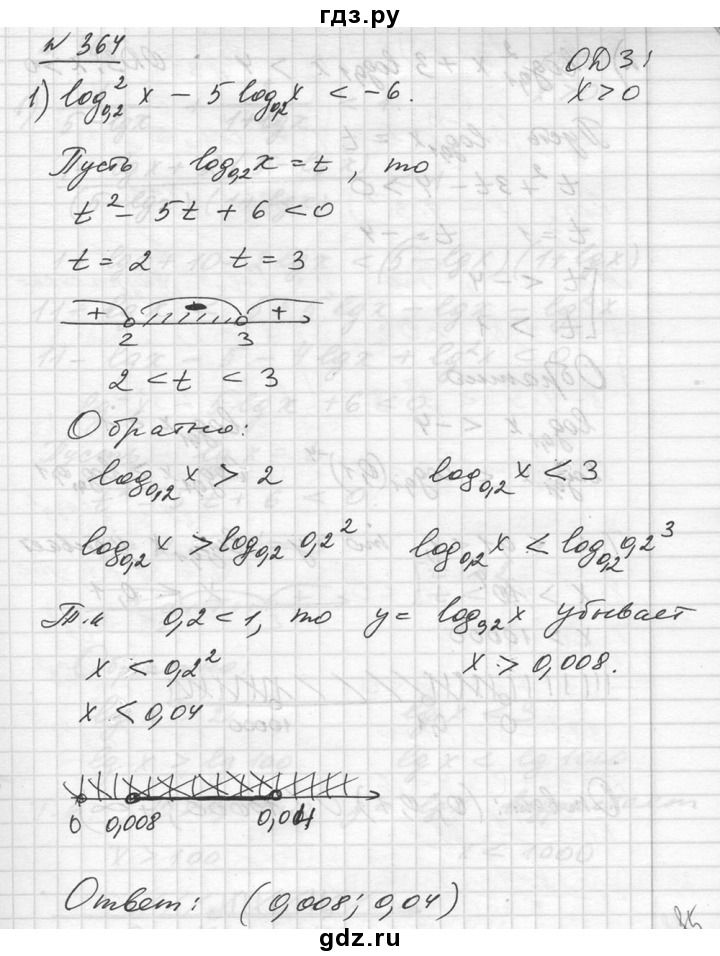 гдз.ру
№ 364
1) log²₀,₂ x − 5 log₀,₂ x < −6.
ОДЗ:
x > 0
Пусть log₀,₂ x = t, то
t² − 5t + 6 < 0
t = 2 t = 3
+ − +
2 3
2 < t < 3
Обратно:
log₀,₂ x > 2 log₀,₂ x < 3
log₀,₂ x > log₀,₂ 0,2² log₀,₂ x < log₀,₂ 0,2³
Т.к 0,2 < 1, то y = log₀,₂ x убывает
x < 0,2² x > 0,008.
x < 0,04
0 0,008 0,04
Ответ: (0,008; 0,04)
gdz.ru